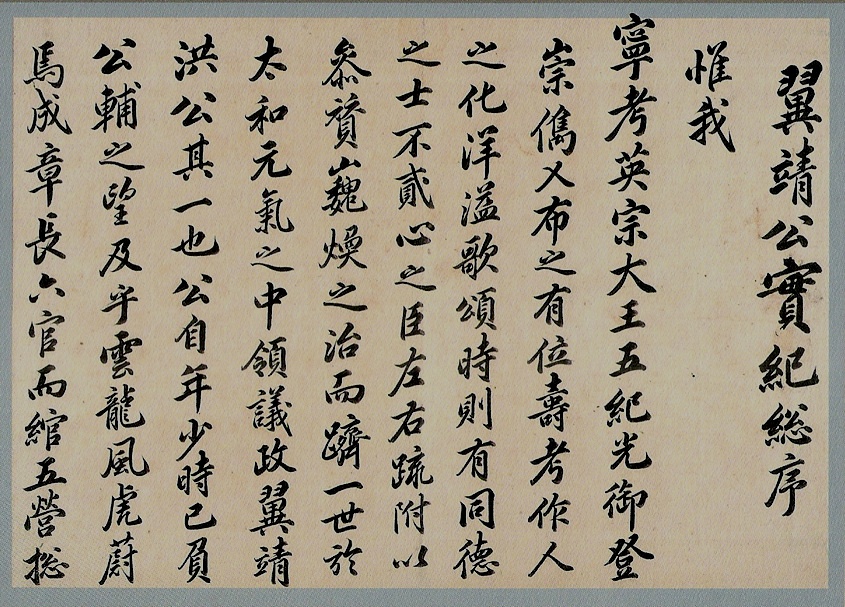 翼靖公實紀総序
惟我
寧考英宗大王五紀光御登
崇儁乂布之有位壽考作人
之化洋溢歌頌時則有同德
之士不貳心之臣左右疏附以
叅賛巍煥之治而躋一世於
太和元氣之中領議政翼靖
洪公其一也公自年少時已負
公輔之望及乎雲龍風虎蔚
焉成章長六官而綰五營総